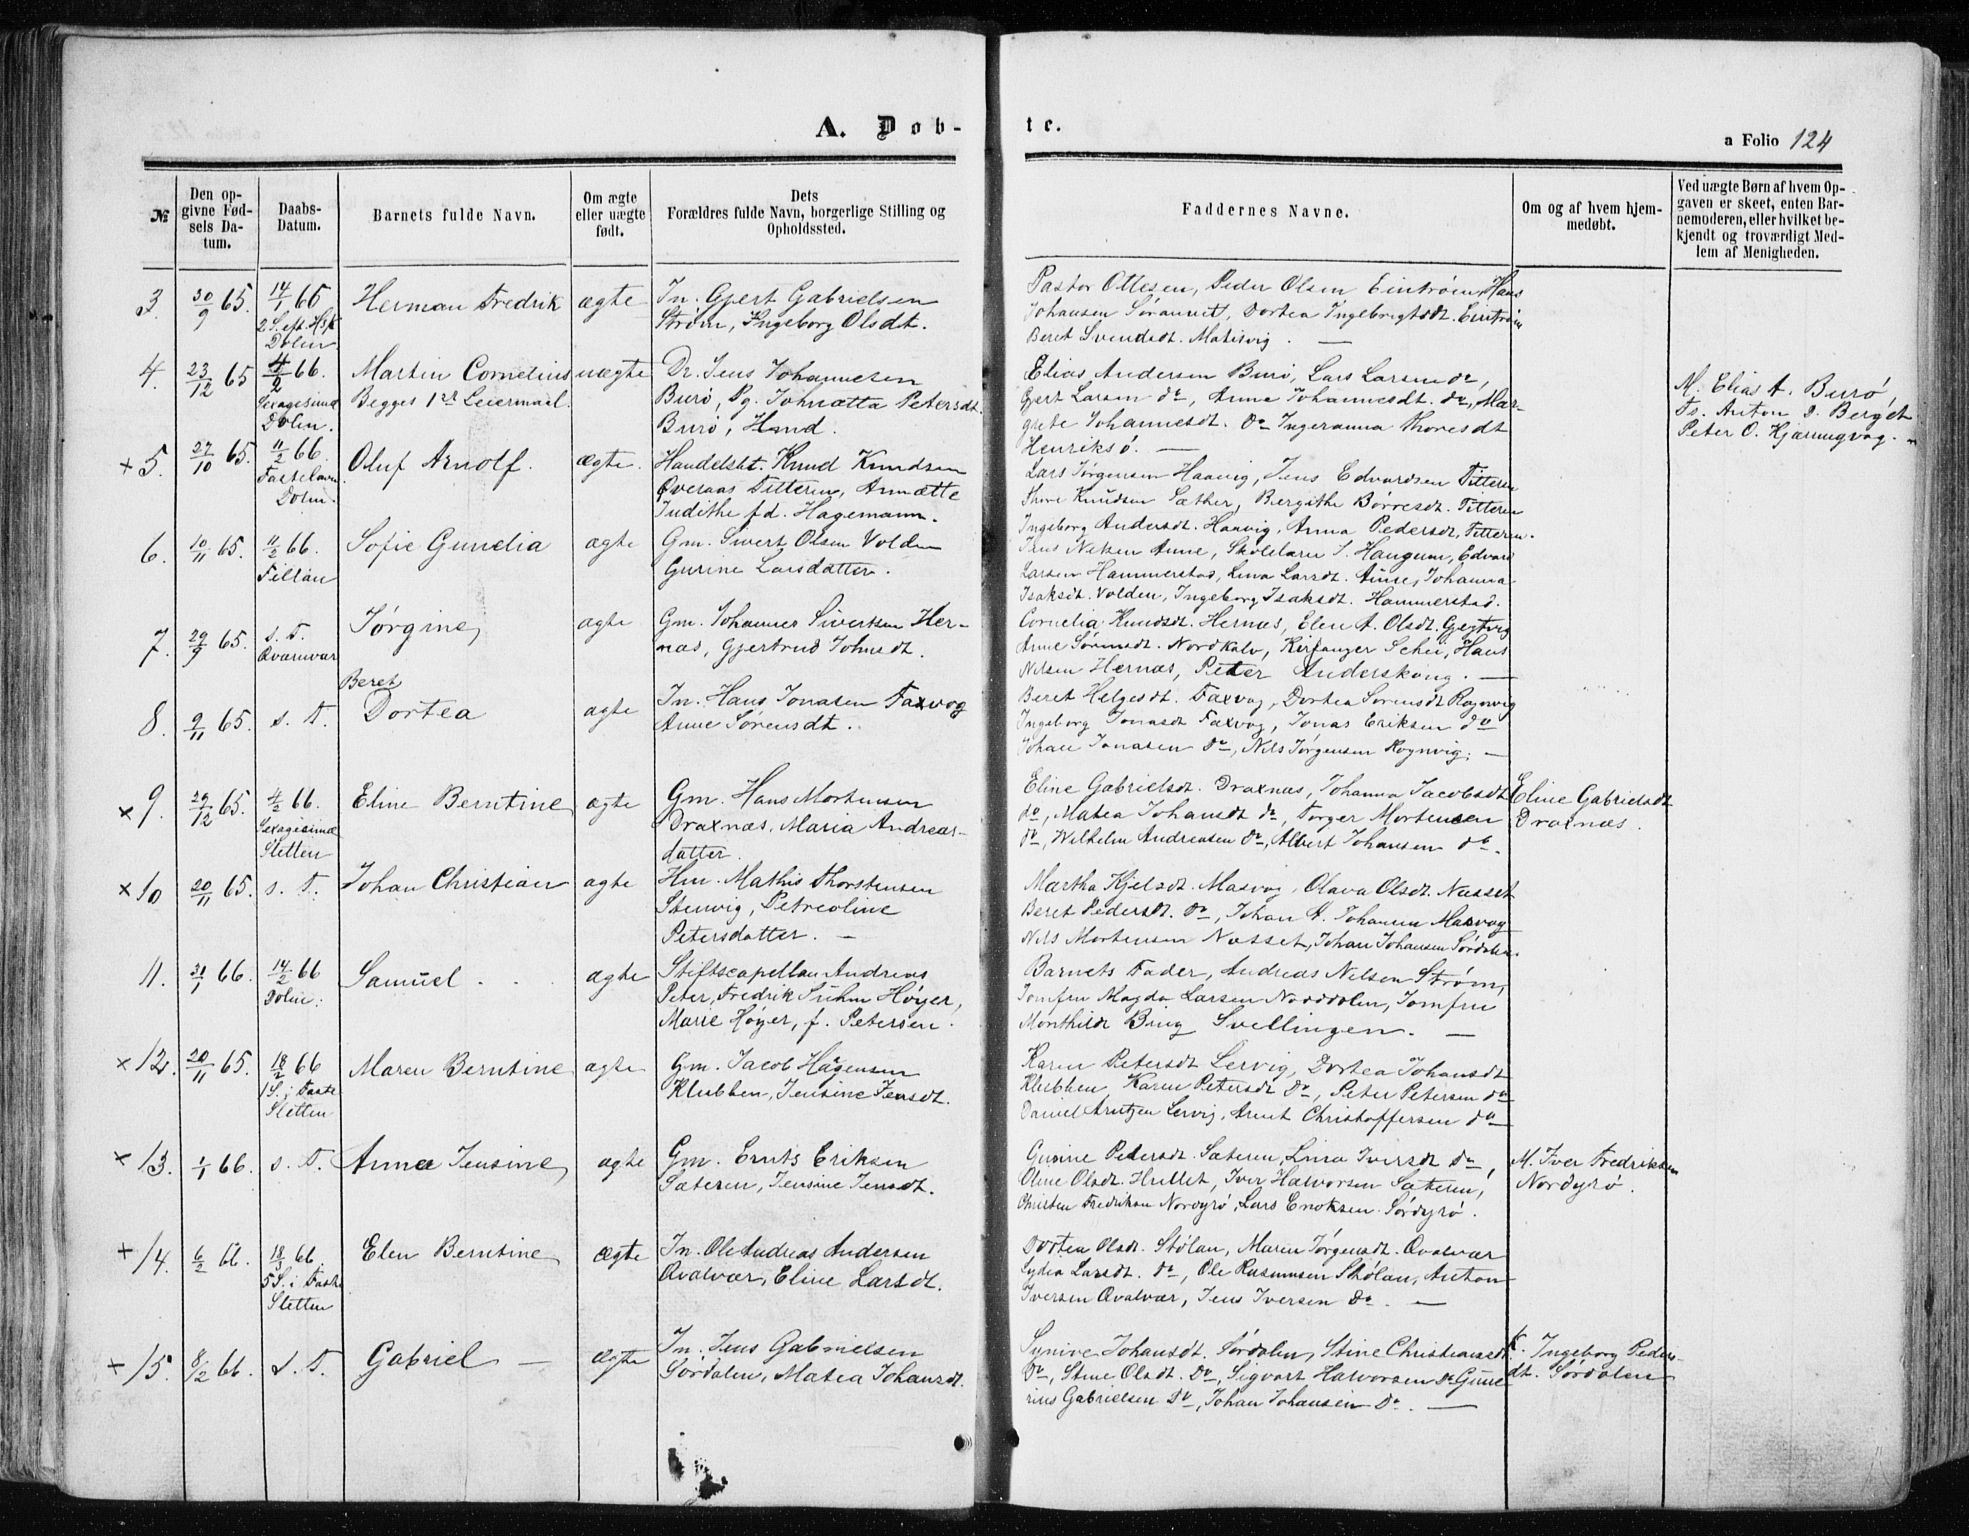 A. Døb-
te.
a Folio 124
№
Den op-
givne Fød-
sels Da-
tum.
Daabs-
Datum.
Barnets fulde Navn.
Om ægte
eller uægte
født.
Dets
Forældres fulde Navn, borgerlige Stilling og
Opholdssted.
Faddernes Navne.
Om og af hvem hjem-
medøbt.
Ved uægte Børn af hvem Op-
gaven er skeet, enten Bar-
nemoderen, eller hvilket be-
kjendt og troværdigt Med-
lem af Menigheden.
3. 30/9 65. 14/1 65 Herman Fredrik ægte In. Gjert Gabrielsen
2 S. eft. H3k Strøm, Ingeborg Olsdt.
Dolm
Pastor Ottesen, Peder Olsen Hans
Johansen Dortea Ingebrigtsdt.
Beret Svendsdt. Matisvig. —
4. 23/12 65 4/2 66. Martin Cornelius uægte Dr. Jens Johannesen
Sexagesima Begges 1ste Leiermaal. Burø, Pg. Johnætta Petersdt.
Dolm. Burø,
Elias Andersen Burø, Lars Larsen do,
Gjert Larsen do, Anne Johannesdt. do, Mar-
grete Johannesdt. Do Ingeranna Thoresdt
Henriksø. —
M. Elias A. Burø,
Fs. Anton Berget
Peter O. Kjerringvag.
+ 5. 27/10 65. 11/2 66. Oluf Arnolf. ægte. Handelsbt. Knud Knudsen
Fastelavn Overaas Titteren, Annætte
Dolm. Judithe fd. Hagemann.
Lars Jørgensen Haavig, Jens Edvardsen Titteren
Knudsen Sæther, Bergithe Børresdt. Titteren
Ingeborg Andersdt. Haavig, Anna Pedersdt. Titteren.
6. 10/11 65. 11/2 66. Sofie Gunelia ægte Gm. Sivert Olsen Volden
Fillan Gurine Larsdatter.
Jens Nilsen Aune, Skolelærer Haugum, Edvard
Larsen Hammerstad, Lina Larsdt. Aune, Johanna
Isaksdt. Volden, Ingeborg Isaksdt. Hammerstad.
7. 29/9 65. s. T. Jørgine ægte Gm. Johannes Sivertsen Her-
Qvænvær næs, Gjertrud Johnsdt.
Cornelia Knudsdt. Hernæs, Elen A. Olsdt.
Anne Nordkalv, Kirsanger Schei, Hans
Nilsen Hernæs, Peter Anderskoug. —
8. 9/11 65. s. T. Beret
Dortea ægte In. Hans Jonasen Faxvog
Anne Sørensdt.
Beret Helgesdt. Faxvog, Dortea Sørensdt Røgnvig
Ingeborg Jonasdt Faxvog, Jonas Eriksen do
Johan Jonasen Do, Nils Jørgensen Røgnvig. —
× 9. 29/12 65. 4/2 66. Eline Berntine ægte Gm. Hans Mortensen
Sexagesima Draxnæs, Maria Andreas-
Sletten datter.
Eline Gabrielsdt. Draxnæs, Johanna Jacobsdt
do, Matea Johansdt do, Torger Mortensen
do, Wilhelm Andreasen Do, Albert Johansen do.
Eline Gabrielsdt
Draxnæs.
× 10 20/11 65. s. T. Johan Christian ægte Hm. Mathis Thorstensen
Stenvig, Petreoline
Petersdatter. —
Martha Kjelsdt. Masvog, Olava Olsdt. Næsset
Beret Pedersdt. Do, Johan A. Johansen Masvog
Nils Mortensen Næsset, Johan Johansen Sørdalen.
11. 31/1 66. 14/2 66 Samuel . . ægte Stiftscapellan Andreas
Dolm. Peter, Fredrik Suhm Høyer,
Marie Høyer, f. Petersen.
Barnets Fader, Andreas Nilsen Strøm,
Jomfru Magda Larsen Norddolm, Jomfru
Monthilde Bing Svellingen. —
× 12. 20/11 65. 18/2 66 Maren Berntine ægte Gm. Jacob Hågensen
1 S. i Faste Klubben, Jensine Jensdt.
Sletten
Karen Petersdt Lervig, Dortea Johansdt
Klubben, Karen Petersdt Do, Peter Petersen do
Daniel Arntzen Lervig, Arnt Christoffersen do
× 13. 1/1 66. s. T. Anna Jensine ægte Gm. Ernts Eriksen
Sæteren, Jensine Jensdt.
Gurine Pedersdt. Sæteren, Lina Iversdt do,
Oline Olsdt. Hullet, Iver Halvorsen Sæteren,
Christen Fredriksen Nordyrø, Lars Enoksen Sørdyrø.
M. Iver Fredriksen
Nordyrø.
+ 14. 6/2 66. 18/3 66. Elen Berntine ægte In. Ole Andreas Andersen
5 S. i Faste Qvalvær, Eline Larsdt.
Sletten
Dortea Olsdt. Stølan, Maren Jørgensdt. Qvalvær
Lydia Larsdt. do, Ole Rasmusen Stølan, Anton
Iversen Qvalvær, Jens Iversen Do. —
+ 15. 8/2 66. s. T. Gabriel — ægte In. Jens Gabrielsen
Sørdalen, Matea Johansdt.
Synive Johansdt. Sørdalen, Stine Christiansdt.
Do, Stine Olsdt. Do, Sigvart Halvorsen Do Gune-
rius Gabrielsen Do, Johan Johansen Do. —
K. Ingeborg Peders-
dt. Sørdalen